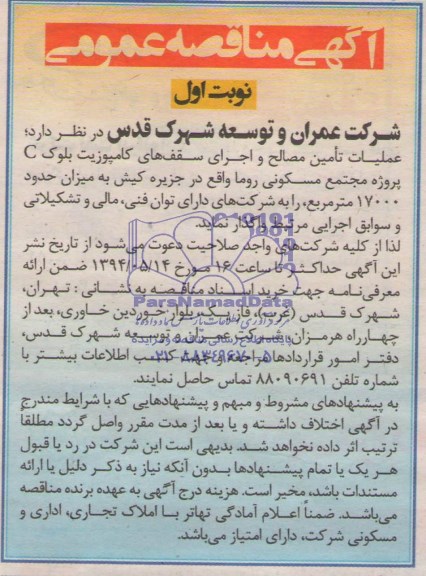 آگهی مناقصه عمومی
نوبت اول
شرکت عمران و توسعه شهرک قدس در نظر دارد؛
عملیات تأمین مصالح و اجرای سقف‌های کامپوزیت بلوک C
پروژه مجتمع مسکونی روما واقع در جزیره کیش به میزان حدود
۱۷۰۰۰ مترمربع، را به شرکت‌های دارای توان فنی، مالی و تشکیلاتی
و سوابق اجرایی مرتبط واگذار نماید.
لذا از کلیه شرکت‌های واجد صلاحیت دعوت می‌شود از تاریخ نشر
این آگهی حداکثر تا ساعت ۱۶ مورخ ۱۳۹۴/۰۵/۱۴ ضمن ارائه
معرفی‌نامه جهت خرید اسناد مناقصه به نشانی : تهران،
ParsNamadData
شهرک قدس (غرب)، فاز یک، بلوار خوردین خاوری، بعد از
چهارراه هرمزان، شرکت عمران و توسعه شهرک قدس،
دفتر امور قراردادها مراجعه و جهت کسب اطلاعات بیشتر با
شماره تلفن ۸۸۰۹۰۶۹۱ تماس حاصل نمایند.
به پیشنهادهای مشروط و مبهم و پیشنهادهایی که با شرایط مندرج
در آگهی اختلاف داشته و یا بعد از مدت مقرر واصل گردد مطلقاً
ترتیب اثر داده نخواهد شد. بدیهی است این شرکت در رد یا قبول
هر یک یا تمام پیشنهادها بدون آنکه نیاز به ذکر دلیل یا ارائه
مستندات باشد، مخیر است. هزینه درج آگهی به عهده برنده مناقصه
می‌باشد. ضمناً اعلام آمادگی تهاتر با املاک تجاری، اداری و
مسکونی شرکت، دارای امتیاز می‌باشد.